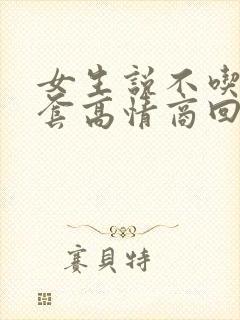 女生說不喫
套高情商回
賽貝特